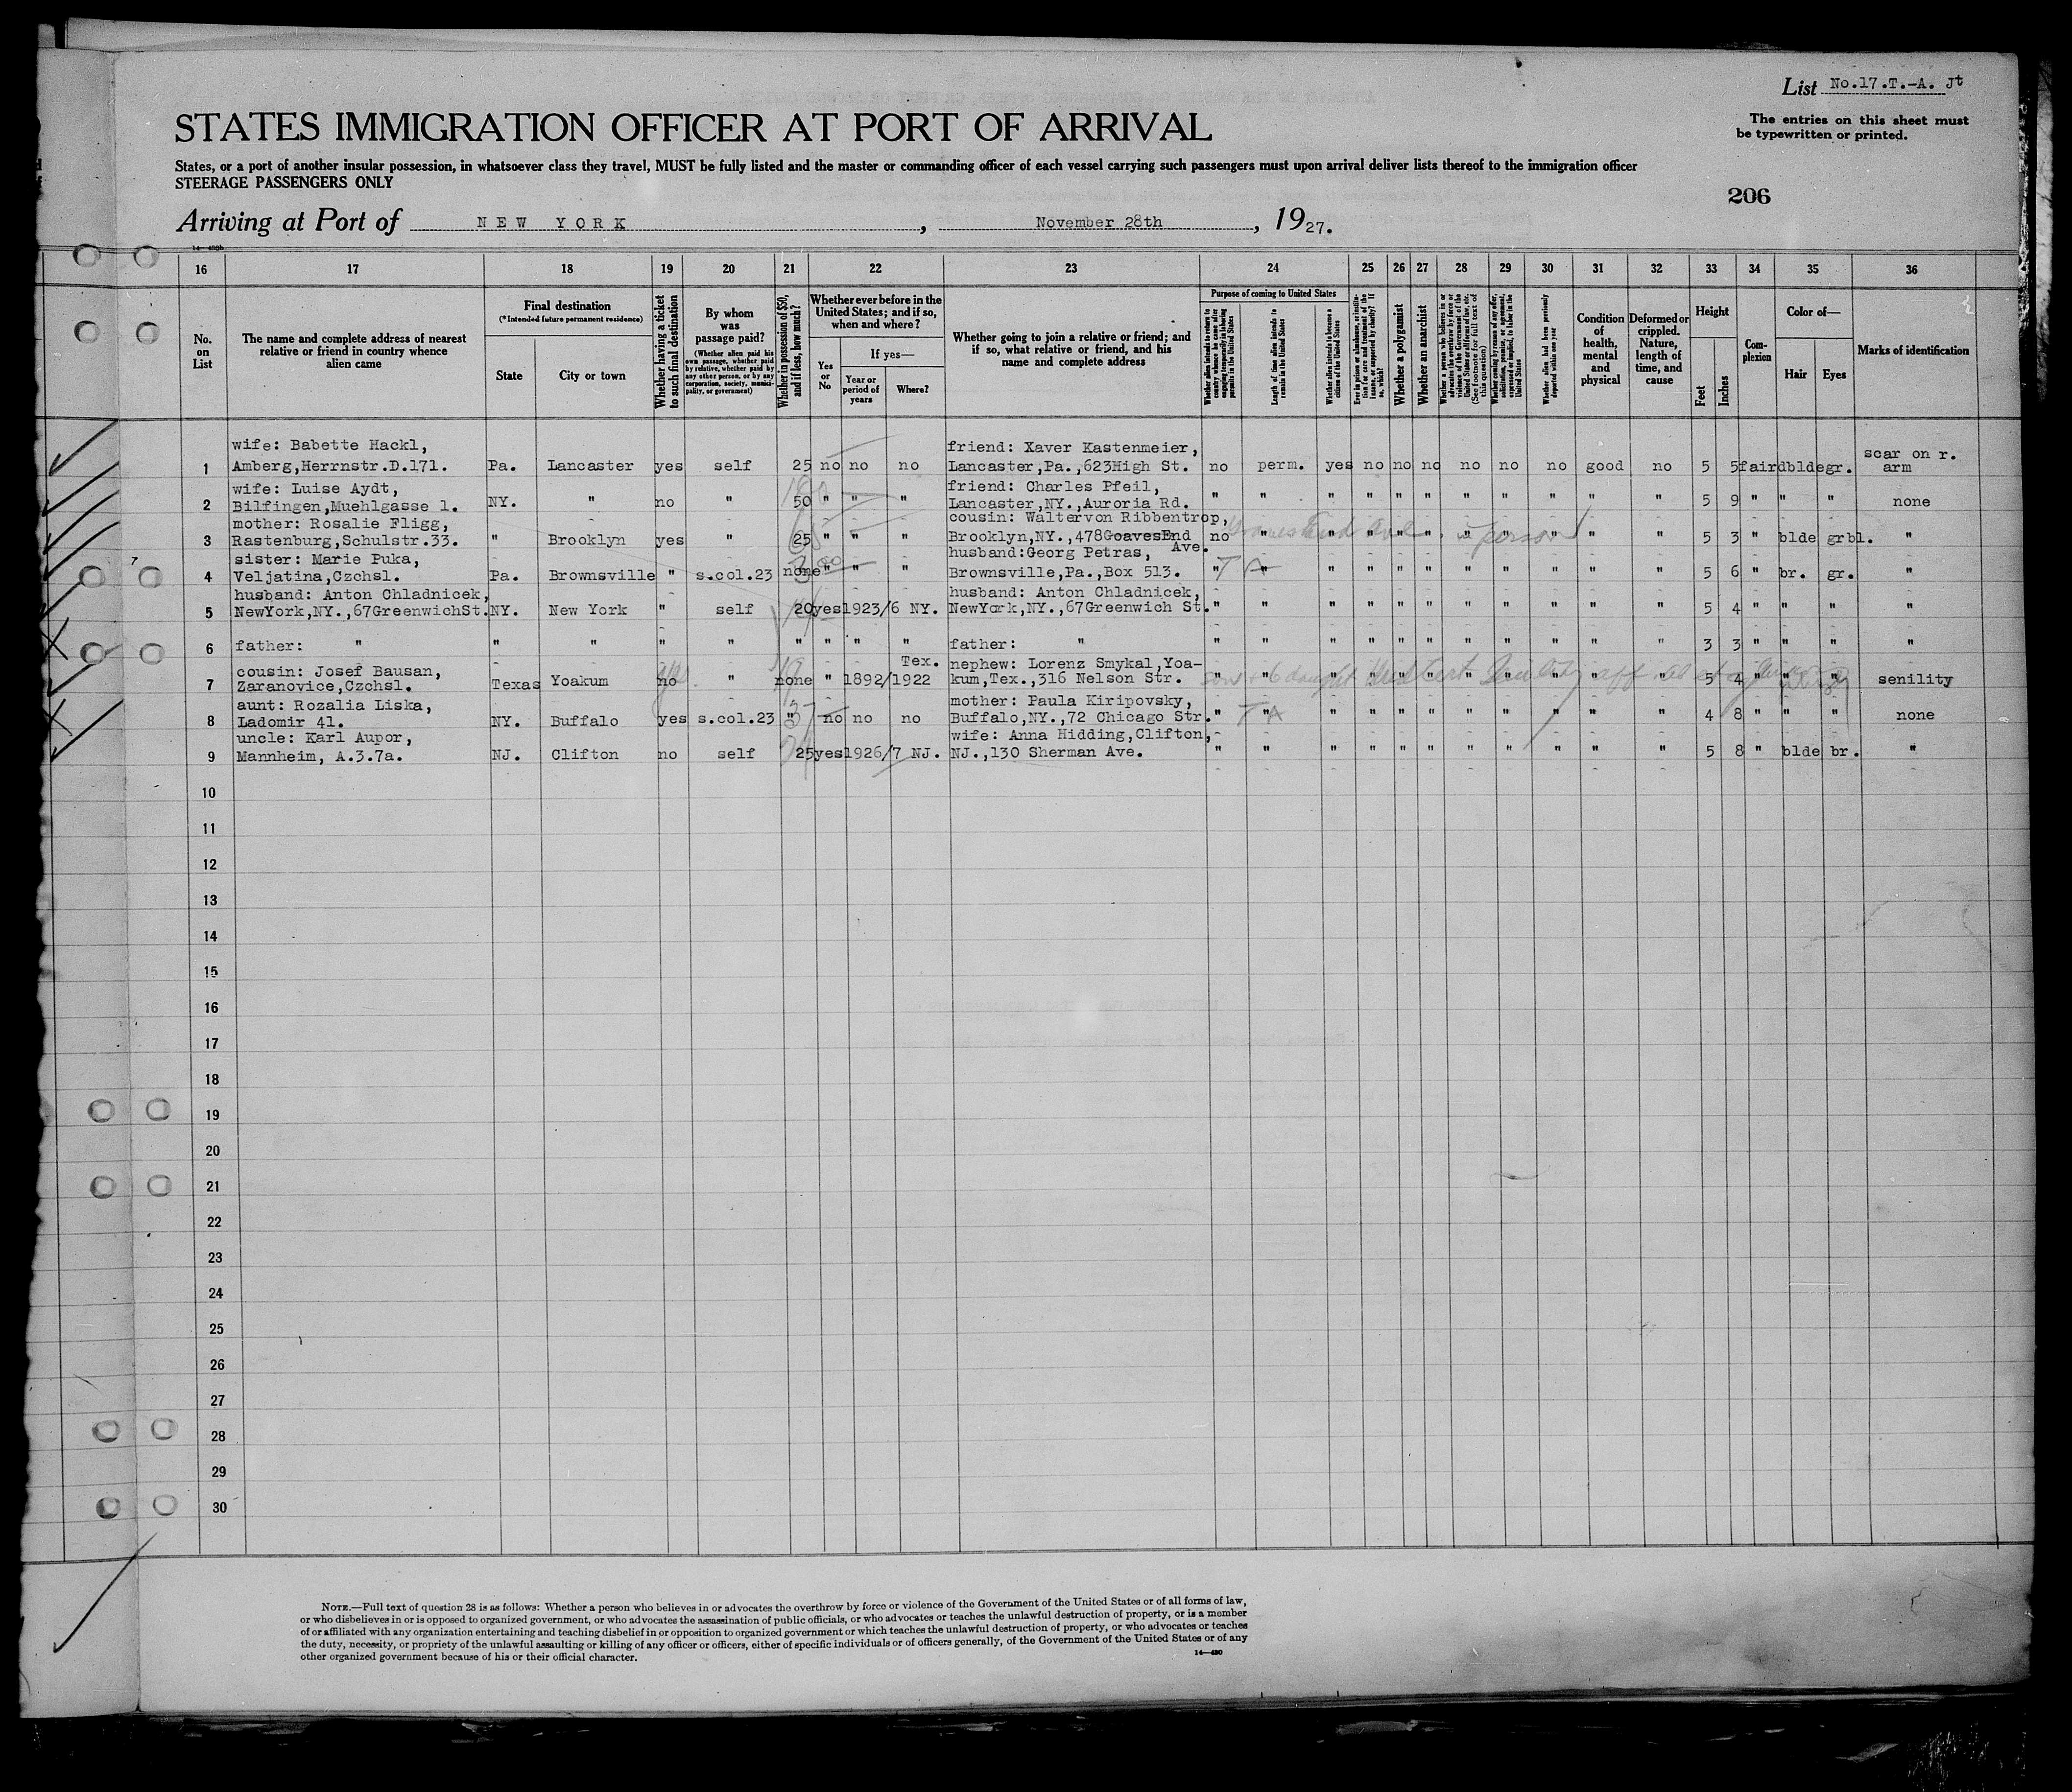 List No.17.T.-A. Jt
STATES IMMIGRATION OFFICER AT PORT OF ARRIVAL
The entries on this sheet must
be typewritten or printed.
States, or a port of another insular possession, in whatsoever class they travel, MUST be fully listed and the master or commanding officer of each vessel carrying such passengers must upon arrival deliver lists thereof to the immigration officer
STEERAGE PASSENGERS ONLY
206
Arriving at Port of NEW YORK, November 28th, 1927.
16 17 18 19 20 21 22 23 24 25 26 27 28 29 30 31 32 33 34 35 36
No. on List
The name and complete address of nearest relative or friend in country whence alien came
Final destination (*Intended future permanent residence)
State
City or town
Whether having a ticket to such final destination
By whom was passage paid?
(Whether alien paid his own passage, whether paid by relative, whether paid by any other person, or by any corporation, society, municipality, or government)
Whether in possession of $50, and if less, how much?
Whether ever before in the United States; and if so, when and where?
Yes or No
If yes—
Year or period of years
Where?
Whether going to join a relative or friend; and if so, what relative or friend, and his name and complete address
Purpose of coming to United States
Whether alien intends to return to country whence he came after engaging temporarily in laboring pursuits in the United States
Length of time alien intends to remain in the United States
Whether alien intends to become a citizen of the United States
Ever in prison or almshouse, or institution for care and treatment of the insane, or supported by charity? If so, which?
Whether a polygamist
Whether an anarchist
Whether a person who believes in or advocates the overthrow by force or violence of the Government of the United States or all forms of law, etc. (See footnote for full text of this question)
Whether coming by reason of any offer, solicitation, promise, or agreement, expressed or implied, to labor in the United States
Whether alien had been previously deported within one year
Condition of health, mental and physical
Deformed or crippled. Nature, length of time, and cause
Height
Feet
Inches
Complexion
Color of—
Hair
Eyes
Marks of identification
wife: Babette Hackl, friend: Xaver Kastenmeier, scar on r.
1 Amberg,Herrnstr.D.171. Pa. Lancaster yes self 25 no no no Lancaster,Pa.,623High St. no perm. yes no no no no no no good no 5 5 fair dblde gr. arm
wife: Luise Aydt, friend: Charles Pfeil,
2 Bilfingen,Muehlgasse 1. NY. " no " 50 " " " Lancaster,NY.,Auroria Rd. " " " " " " " " " " " 5 9 " " " none
mother: Rosalie Fligg, cousin: Waltervon Ribbentrop,
3 Rastenburg,Schulstr.33. " Brooklyn yes " 25 " " " Brooklyn,NY.,478GoavesEnd Ave. no " " " " " " " " " " 5 3 " blde grbl. "
sister: Marie Puka, husband:Georg Petras,
4 Veljatina,Czchsl. Pa. Brownsville " s.col.23 none " " " Brownsville,Pa.,Box 513. " " " " " " " " " " " 5 6 " br. gr. "
husband: Anton Chladnicek, husband: Anton Chladnicek,
5 NewYork,NY.,67GreenwichSt. NY. New York " self 20 yes 1923/6 NY. NewYork,NY.,67Greenwich St. " " " " " " " " " " " 5 4 " " " "
6 father: " " " " " " " " " father: " " " " " " " " " " " " 3 3 " " " "
cousin: Josef Bausan, Tex. nephew: Lorenz Smykal,Yoa-
7 Zaranovice,Czchsl. Texas Yoakum no " none " 1892/1922 kum,Tex.,316 Nelson Str. " " " " " " " " " " " 5 4 " " " senility
aunt: Rozalia Liska, mother: Paula Kiripovsky,
8 Ladomir 41. NY. Buffalo yes s.col.23 " no no no Buffalo,NY.,72 Chicago Str. " " " " " " " " " " " 4 8 " " " none
uncle: Karl Aupor, wife: Anna Hidding,Clifton,
9 Mannheim, A.3.7a. NJ. Clifton no self 25 yes 1926/7 NJ. NJ.,130 Sherman Ave. " " " " " " " " " " " 5 8 " blde br. "
10
11
12
13
14
15
16
17
18
19
20
21
22
23
24
25
26
27
28
29
30
NOTE.—Full text of question 28 is as follows: Whether a person who believes in or advocates the overthrow by force or violence of the Government of the United States or of all forms of law,
or who disbelieves in or is opposed to organized government, or who advocates the assassination of public officials, or who advocates or teaches the unlawful destruction of property, or is a member
of or affiliated with any organization entertaining and teaching disbelief in or opposition to organized government or which teaches the unlawful destruction of property, or who advocates or teaches
the duty, necessity, or propriety of the unlawful assaulting or killing of any officer or officers, either of specific individuals or of officers generally, of the Government of the United States or of any
other organized government because of his or their official character.
14—430